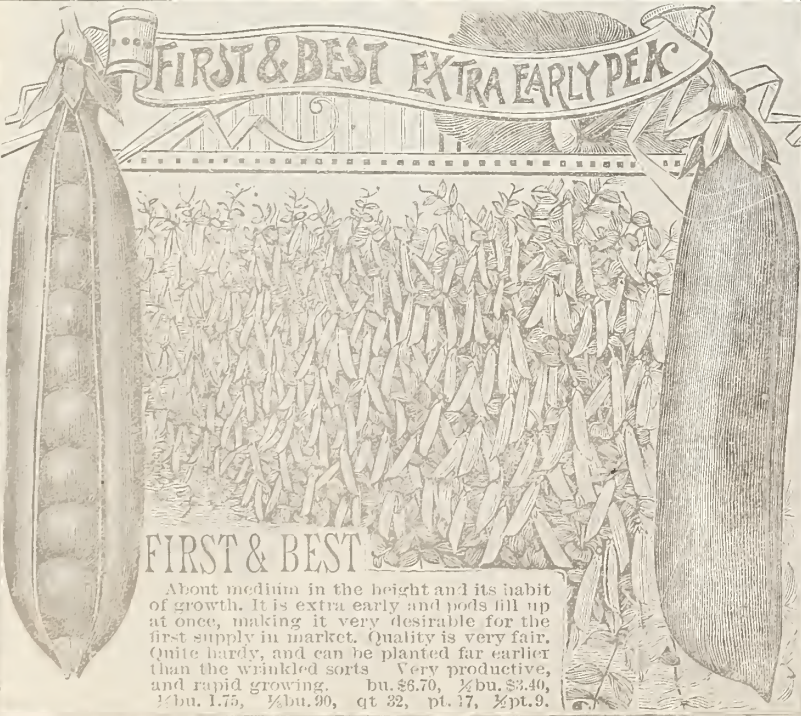 FIRST & BEST EXTRA EARLY PEA
FIRST & BEST
About medium in the height and its habit
of growth. It is extra early and pods fill up
at once, making it very desirable for the
first supply in market. Quality is very fair.
Quite hardy, and can be planted far earlier
than the wrinkled sorts Very productive,
and rapid growing. bu. $6.70, ½bu. $3.40,
¼bu. 1.75, ⅛bu. 90, qt 32, pt. 17, ½pt. 9.